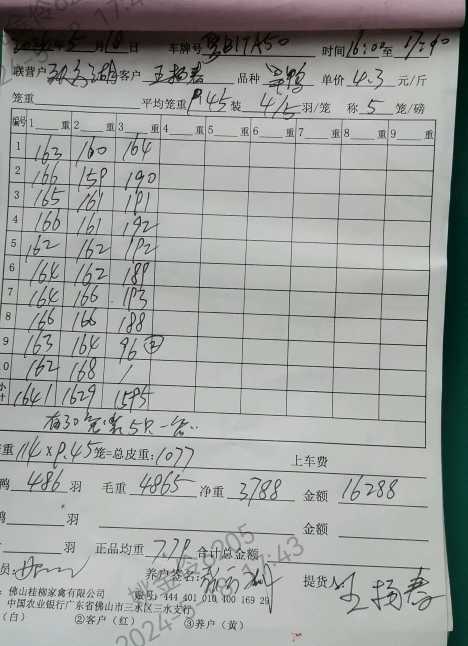 车牌号 粤B17A50 时间 16:00 至 17:40
联营户 客户 王扬春 品种 单价 4.3 元/斤
笼重 平均笼重 9.45 装 4/5 羽/笼 称 5 笼/磅
编号 1 重 2 重 3 重 4 重 5 重 6 重 7 重 8 重 9 重
1 163 160 164
2 166 159 190
3 165 161 191
4 166 161 192
5 162 162 192
6 164 162 189
7 164 166 193
8 166 166 188
9 163 164 96 ②
0 162 168 /
小计 1641 1629 1595
有30笼装5只一笼
重 114 x 9.45 笼=总皮重: 1077 上车费
鸭 486 羽 毛重 4865 净重 3788 金额 16288
羽 金额
羽 正品均重 7.79 合计总金额
员: 养户签名: 提货人: 王扬春
: 佛山桂柳家禽有限公司 账号: 444 401 010 400 169 29
中国农业银行广东省佛山市三水区三水支行
(白) ②客户(红) ③养户(黄)